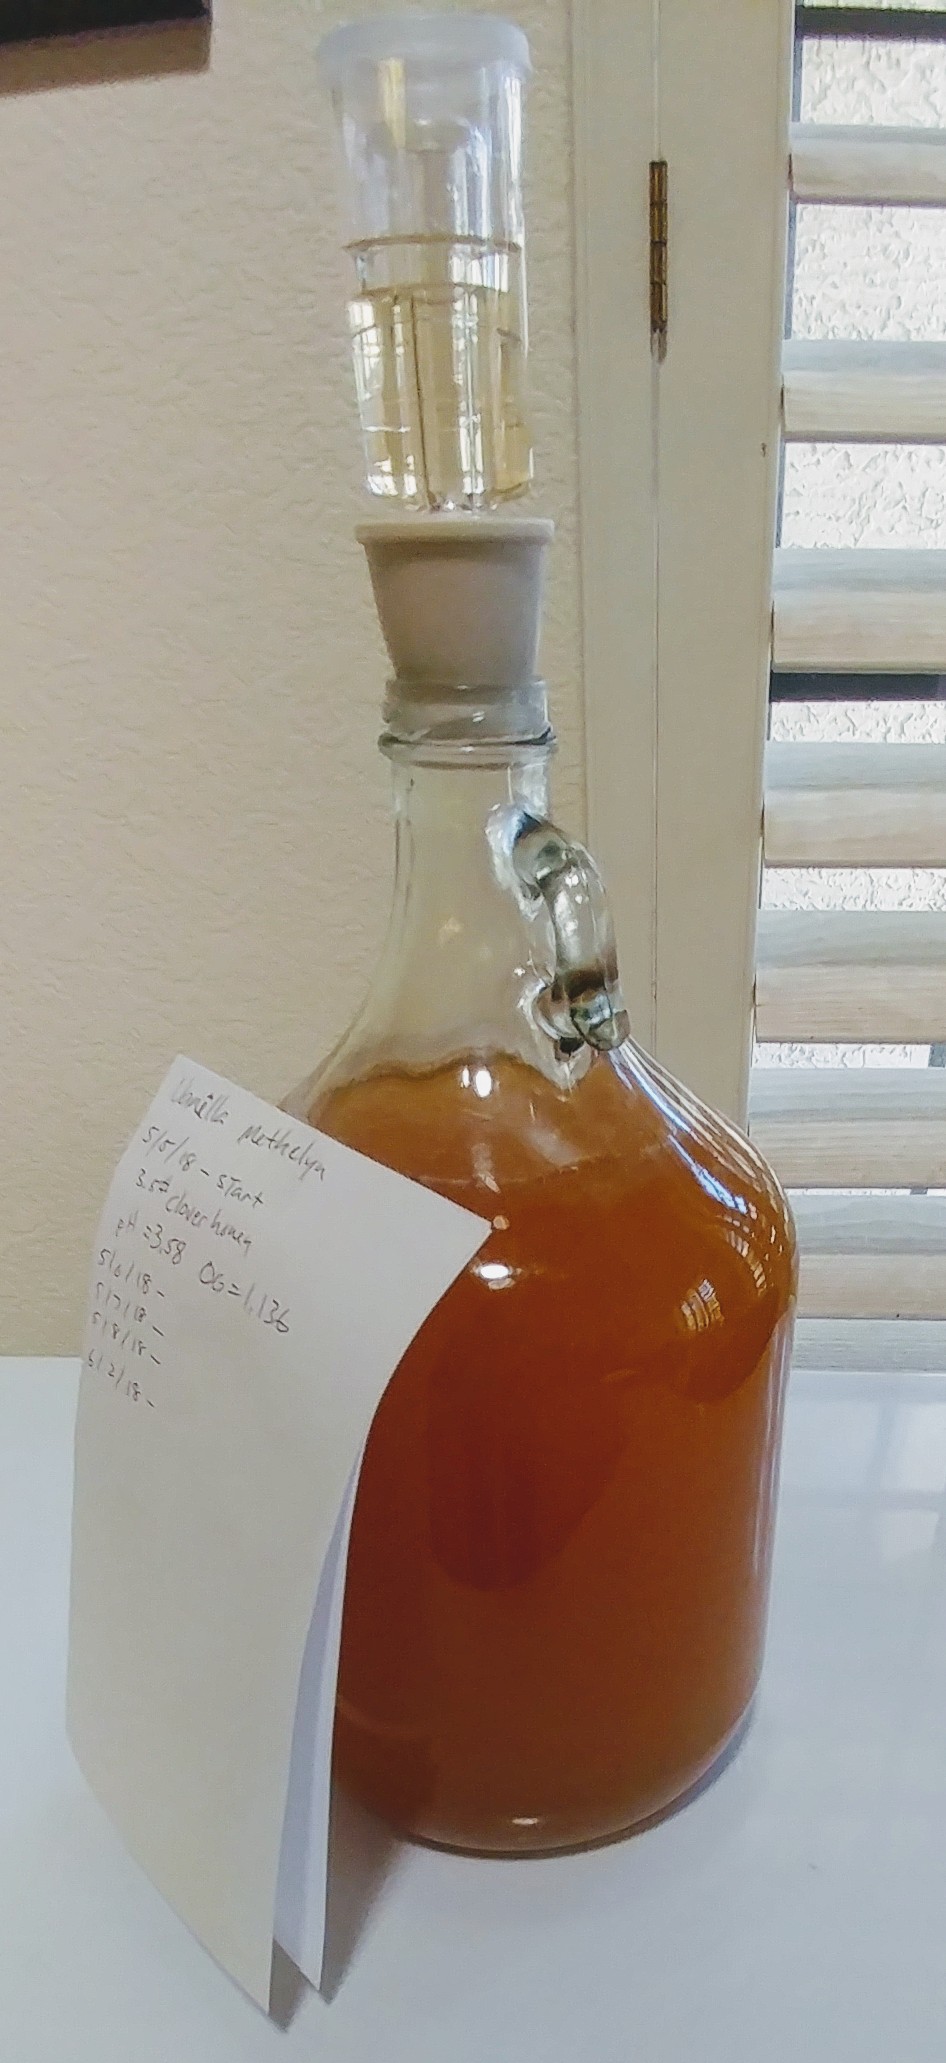 Vanilla Methelyn
5/5/18 - START
3.5# Clover honey
pH = 3.58 OG = 1.136
5/6/18 -
5/7/18 -
5/8/18 -
6/2/18 -